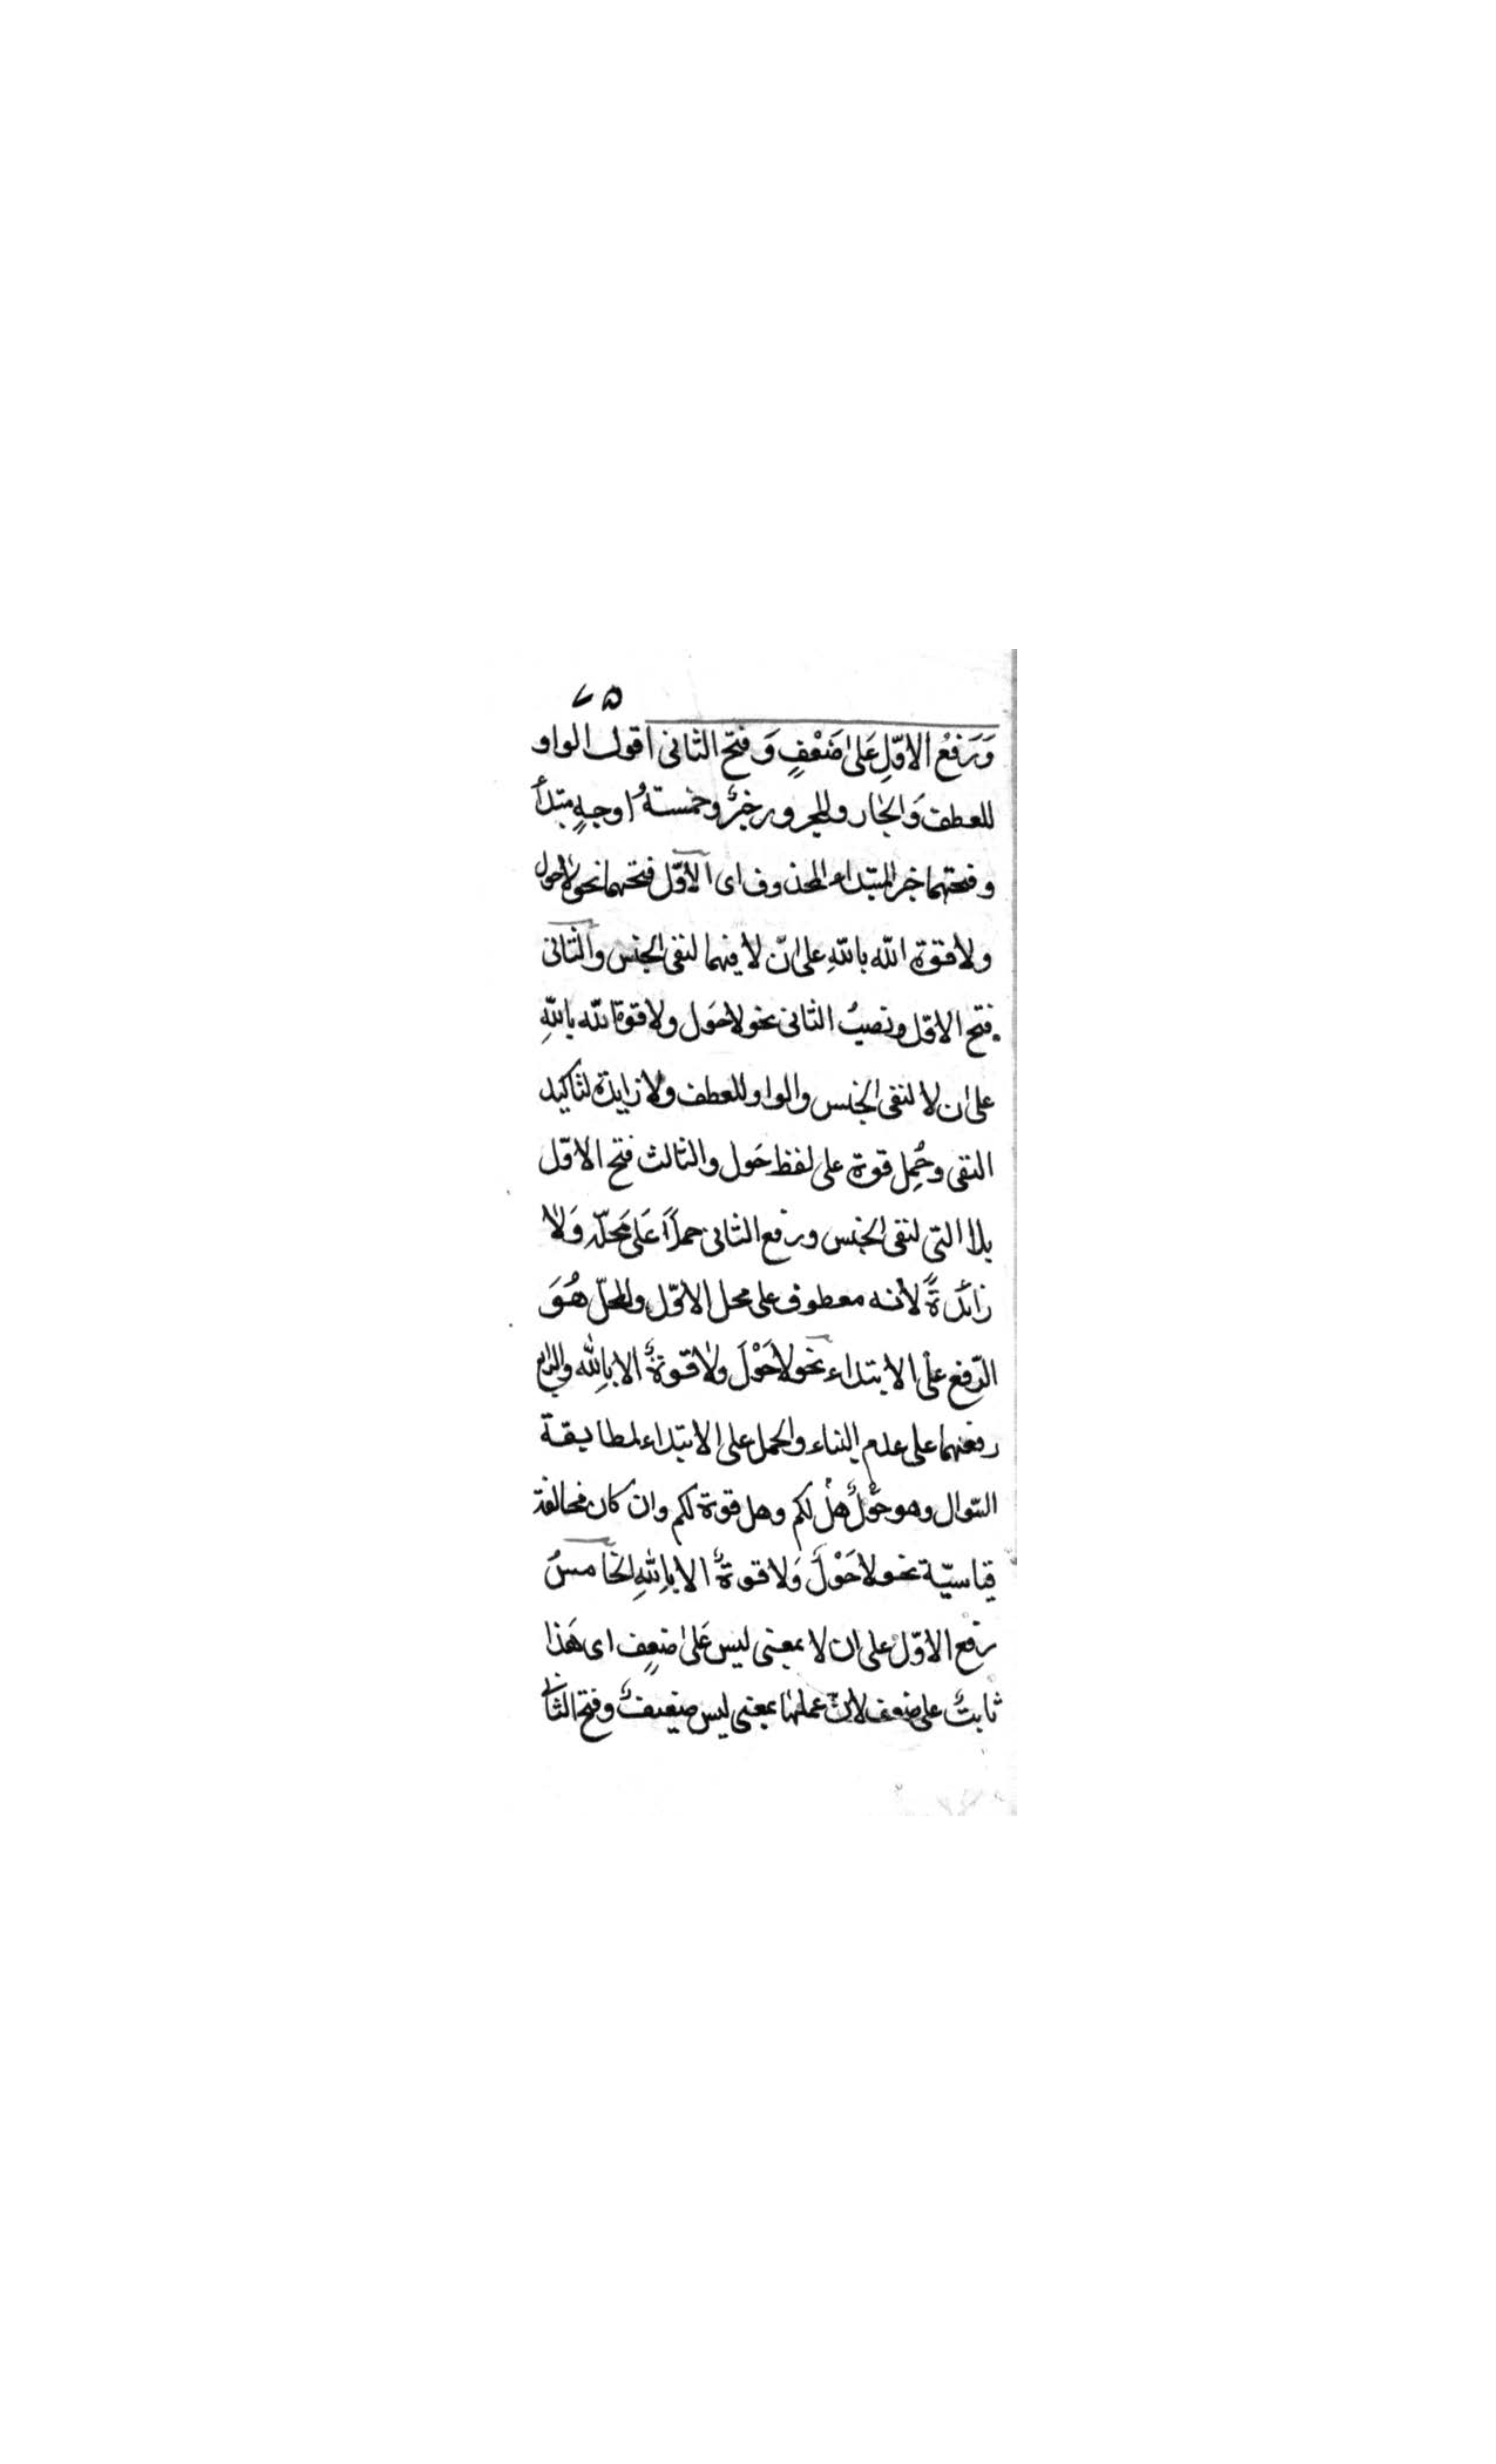 ٧٥
وَرَفعُ الاوّلِ عَلىٰ ضَعْفٍ وَ فتح الثانى اقول الواو
للعطف وَالجار والمجرور خبرٌ وخمستهُ اوجهٍ مبتدأ
وفتحهما خبر المبتداء المحذوف اى الاوّل فتحهما نحو لاحول
ولا قوة الله باللّهِ على انّ لا فيهما لنفى الجنس والثانى
فتح الاوّل ونصبُ الثانى نحو لاحَول ولا قوة الله باللّهِ
على ان لا لنفى الجنس والواو للعطف ولا زايدة لتاكيد
النفى وحُمِل قوة على لفظ حَول والثالث فتح الاوّل
بلا التى لنفى الجنس ورفع الثانى حملاً عَلىٰ مَحلّه وَلا
زائدةً لأنه معطوف على محل الاوّل والمحلّ هُوَ
الرّفع على الابتداء نحو لاحَوْلَ ولا قوةٌ الا بالله والرابع
رفعهما على عدم البناء والحمل على الابتداء لمطابقة
السّوال وهو حَوْلٌ هل لكم وهل قوة لكم وان كان مخالفة
قياسيّة نحو لاحَوْلٌ وَلا قوةٌ الا باللهِ الخامسُ
رفع الاوّل على ان لا بمعنى ليس عَلىٰ ضعفٍ اى هَذا
ثابتٌ على ضعف لانّ عملها بمعنى ليس ضعيفٌ وفتح الثانى